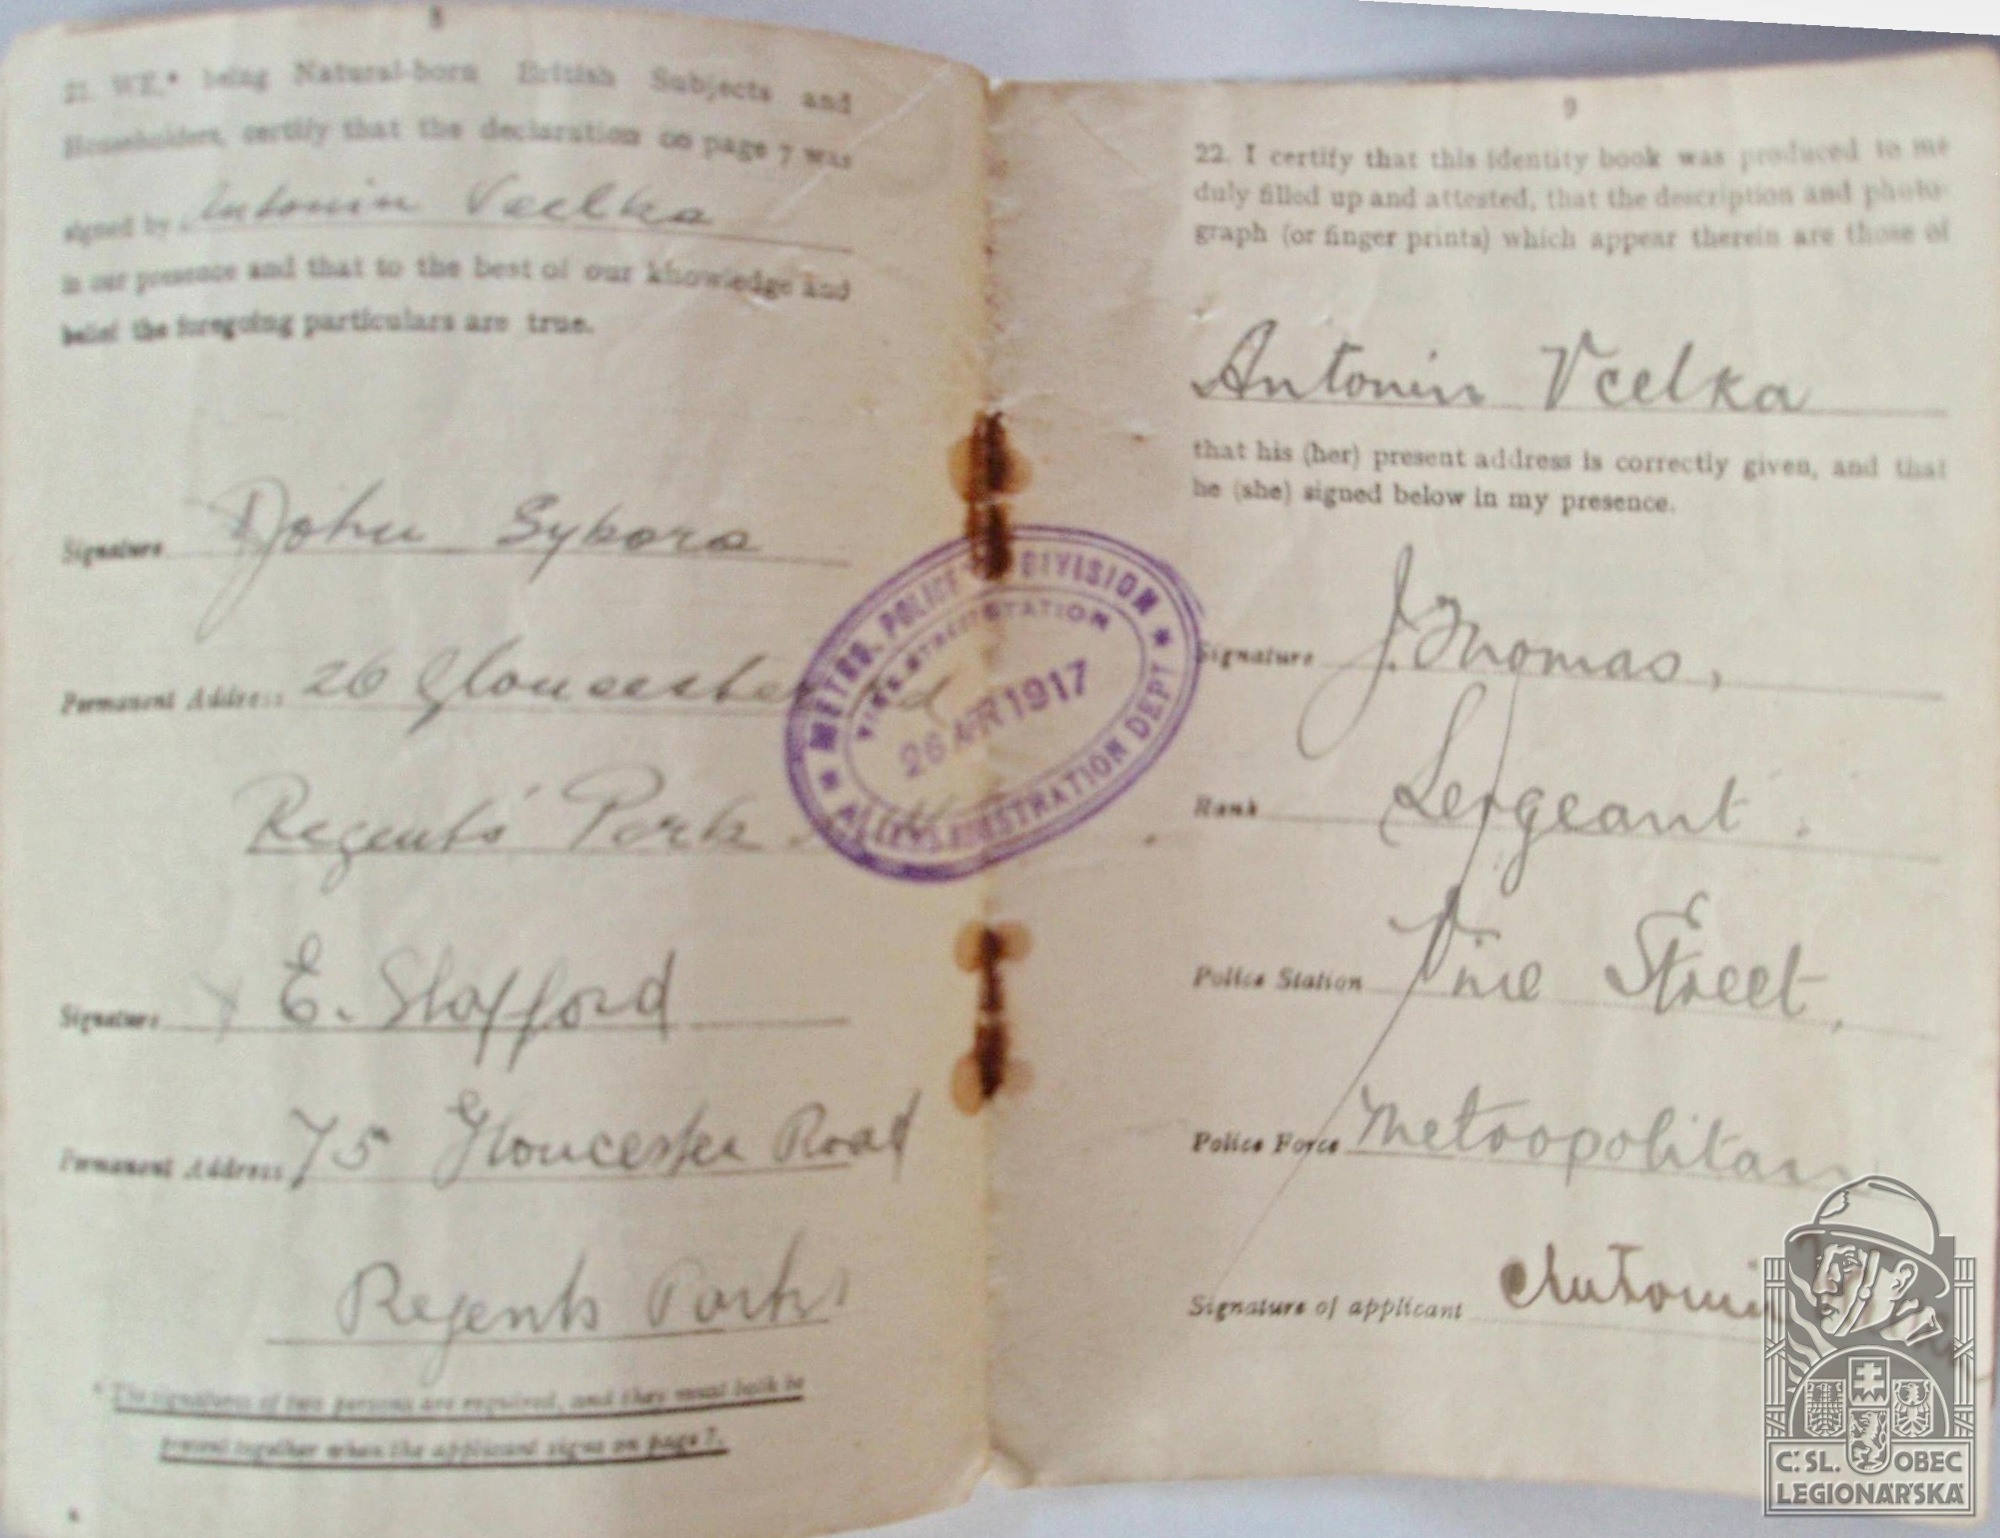 8
21. WE,* being Natural-born British Subjects and
Householders, certify that the declaration on page 7 was
signed by Antonin Vcelka
in our presence and that to the best of our knowledge and
belief the foregoing particulars are true.
Signature John Sykora
Permanent Address 26 Gloucester Rd
Regents' Park
Signature E. Stafford
Permanent Address 75 Gloucester Road
Regents Park
* The signatures of two persons are required, and they must both be
present together when the applicant signs on page 7.
METRO. POLICE DIVISION
VINE STREET STATION
26 APR 1917
ALIENS REGISTRATION DEPT
9
22. I certify that this identity book was produced to me
duly filled up and attested, that the description and photo-
graph (or finger prints) which appear therein are those of
Antonin Vcelka
that his (her) present address is correctly given, and that
he (she) signed below in my presence.
Signature J. Thomas,
Rank Sergeant.
Police Station Vine Street,
Police Force Metropolitan
Signature of applicant Antonin
Č.SL. OBEC
LEGIONÁŘSKÁ